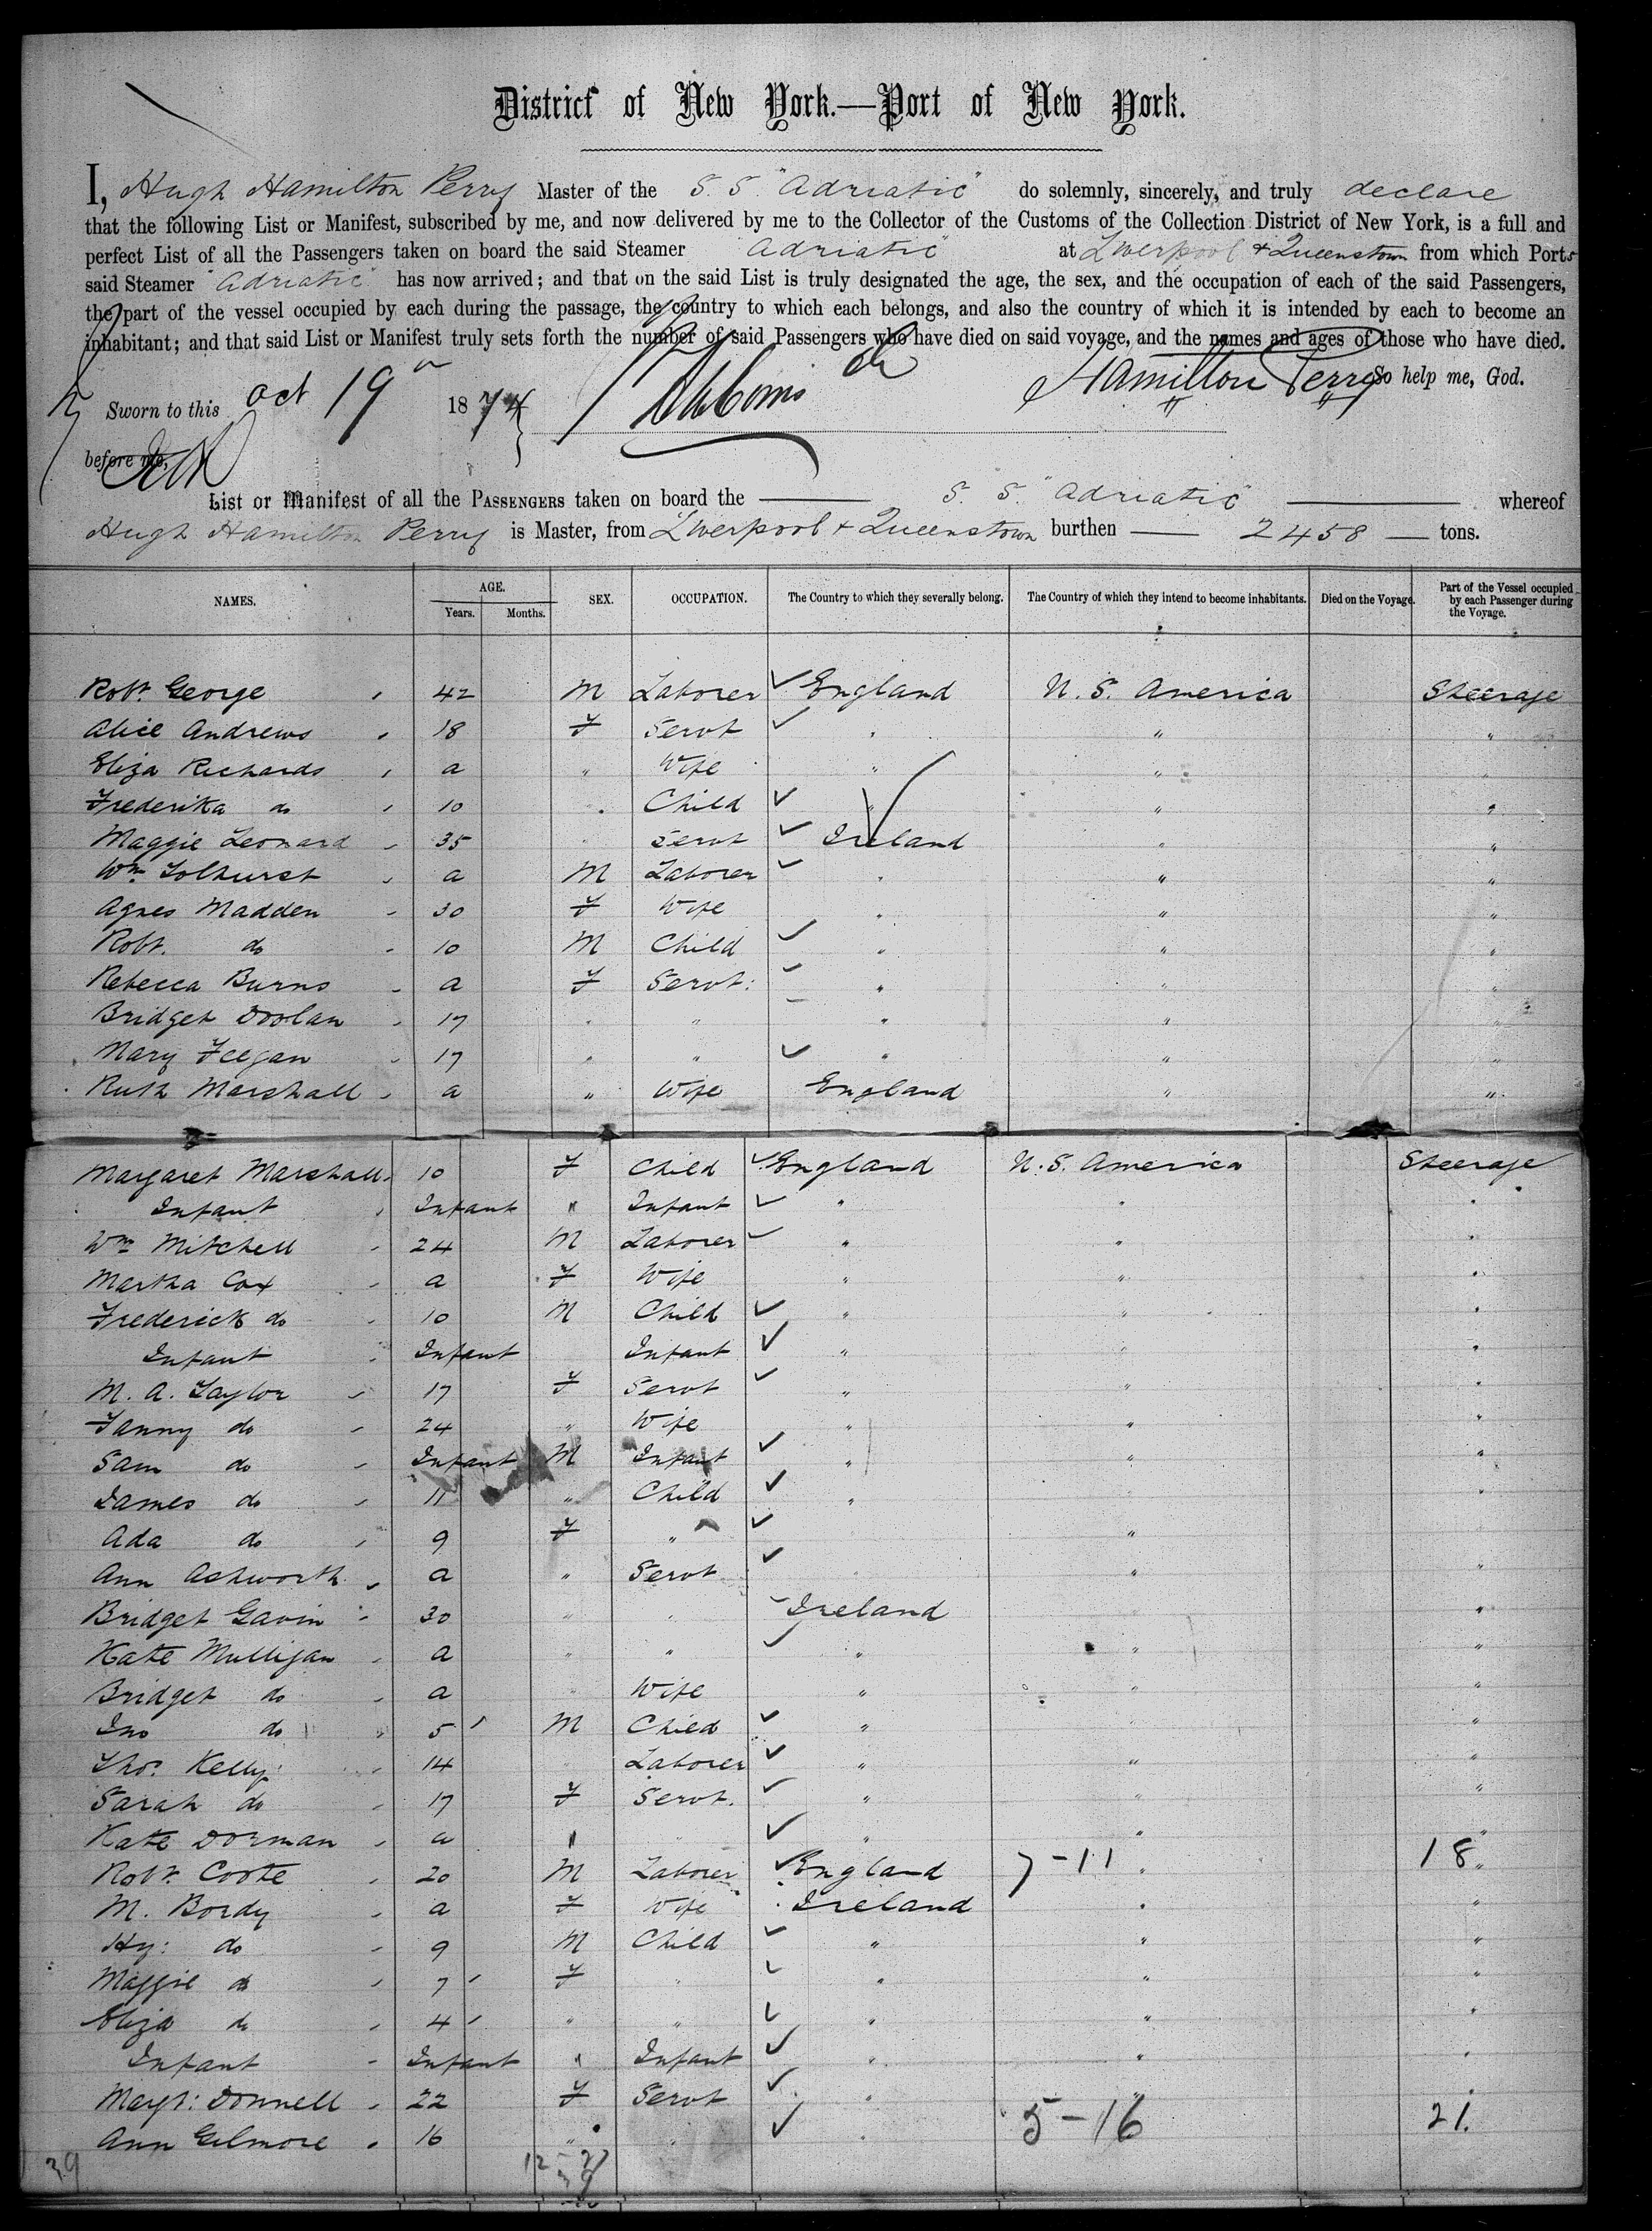 District of New York.—Port of New York.
I, Hugh Hamilton Perry Master of the S. S. "Adriatic" do solemnly, sincerely, and truly declare
that the following List or Manifest, subscribed by me, and now delivered by me to the Collector of the Customs of the Collection District of New York, is a full and
perfect List of all the Passengers taken on board the said Steamer "Adriatic" at Liverpool & Queenstown from which Ports
said Steamer "Adriatic" has now arrived; and that on the said List is truly designated the age, the sex, and the occupation of each of the said Passengers,
the part of the vessel occupied by each during the passage, the country to which each belongs, and also the country of which it is intended by each to become an
inhabitant; and that said List or Manifest truly sets forth the number of said Passengers who have died on said voyage, and the names and ages of those who have died.
Hamilton Perry So help me, God.
Sworn to this Oct 19 1874
before me,
List or Manifest of all the PASSENGERS taken on board the S. S. "Adriatic" whereof
Hugh Hamilton Perry is Master, from Liverpool & Queenstown burthen 2458 tons.
NAMES. AGE. Years. Months. SEX. OCCUPATION. The Country to which they severally belong. The Country of which they intend to become inhabitants. Died on the Voyage. Part of the Vessel occupied by each Passenger during the Voyage.
Robt. George 42 M Laborer England U. S. America Steerage
Alice Andrews 18 F Servt " " "
Eliza Richards a " Wife " " "
Frederika do 10 " Child " " "
Maggie Leonard 35 " Servt Ireland " "
Wm Tolhurst a M Laborer " " "
Agnes Madden 30 F Wife " " "
Robt. do 10 M Child " " "
Rebecca Burns a F Servt: " " "
Bridget Doolan 17 " " " " "
Mary Feegan 17 " " " " "
Ruth Marshall a " Wife England " "
Margaret Marshall 10 F Child England U. S. America Steerage
Infant Infant " Infant " " "
Wm Mitchell 24 M Laborer " " "
Martha Cox a F Wife " " "
Frederick do 10 M Child " " "
Infant Infant Infant " " "
M. A. Taylor 17 F Servt " " "
Fanny do 24 " Wife " " "
Sam do Infant M Infant " " "
James do 11 " Child " "
Ada do 9 F " "
Ann Ashworth a " Servt " "
Bridget Gavin 30 " " Ireland "
Kate Mulligan a " " " " "
Bridget do a " Wife " " "
Jno do 5 M Child " "
Thos. Kelly 14 Laborer " " "
Sarah do 17 F Servt. " " "
Kate Dorman a " " " " "
Robt. Coote 20 M Laborer England 7-11 " 18 "
M. Bordy a F Wife Ireland " "
Hy: do 9 M Child " " "
Maggie do 7 F " " " "
Eliza do 4 " " " " "
Infant Infant " Infant " " "
Margt: Donnell 22 F Servt " " "
Ann Gilmore 16 " " " 5-16 21.
39 12-27
39